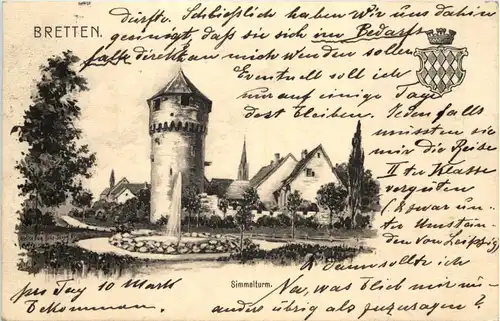 BRETTEN.
dürfte. Schließlich haben Wir uns dahin
geeinigt, daß sie sich im Bedarfs-
falle direkt an mich wenden sollen
Eventuell soll ich
nur auf einige Tage
dort bleiben. Jedenfalls
müssten sie
mir die Reise
II ter Klasse
vergüten
(& zwar un-
ter Umstän-
den von Leipzig)
& dann sollte ich
pro Tag 10 Mark
bekommen.
Simmelturm.
Na, was bleibt mir nun
andere übrig als zuzusagen?